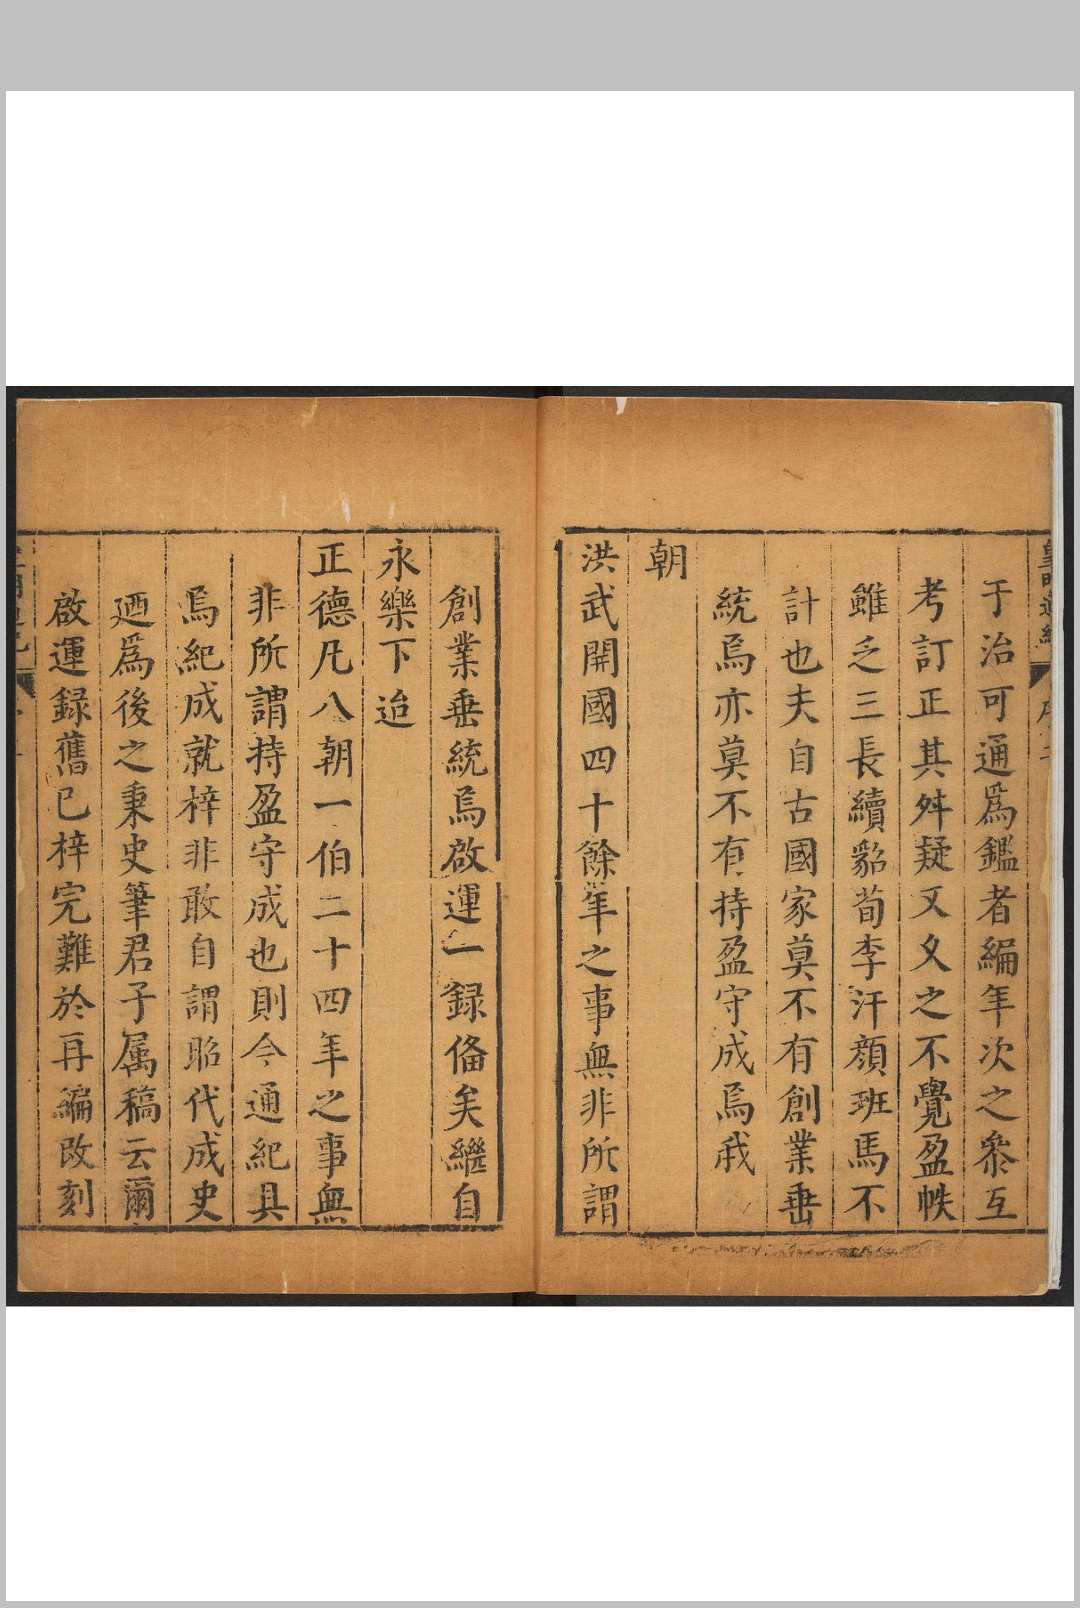 于治可通爲鑑者編年次之叅互
考訂正其舛疑又久之不覺盈帙
雖乏三長續貂荀李汗顔班馬不
計也夫自古國家莫不有創業垂
統焉亦莫不有持盈守成焉我
朝
洪武開國四十餘年之事無非所謂
創業垂統焉啟運一録備矣繼自
永樂下迨
正德凡八朝一伯二十四年之事無
非所謂持盈守成也則今通紀具
焉紀成就梓非敢自謂昭代成史
廼爲後之秉史筆君子属稿云爾
啟運録舊已梓完難於再編改刻